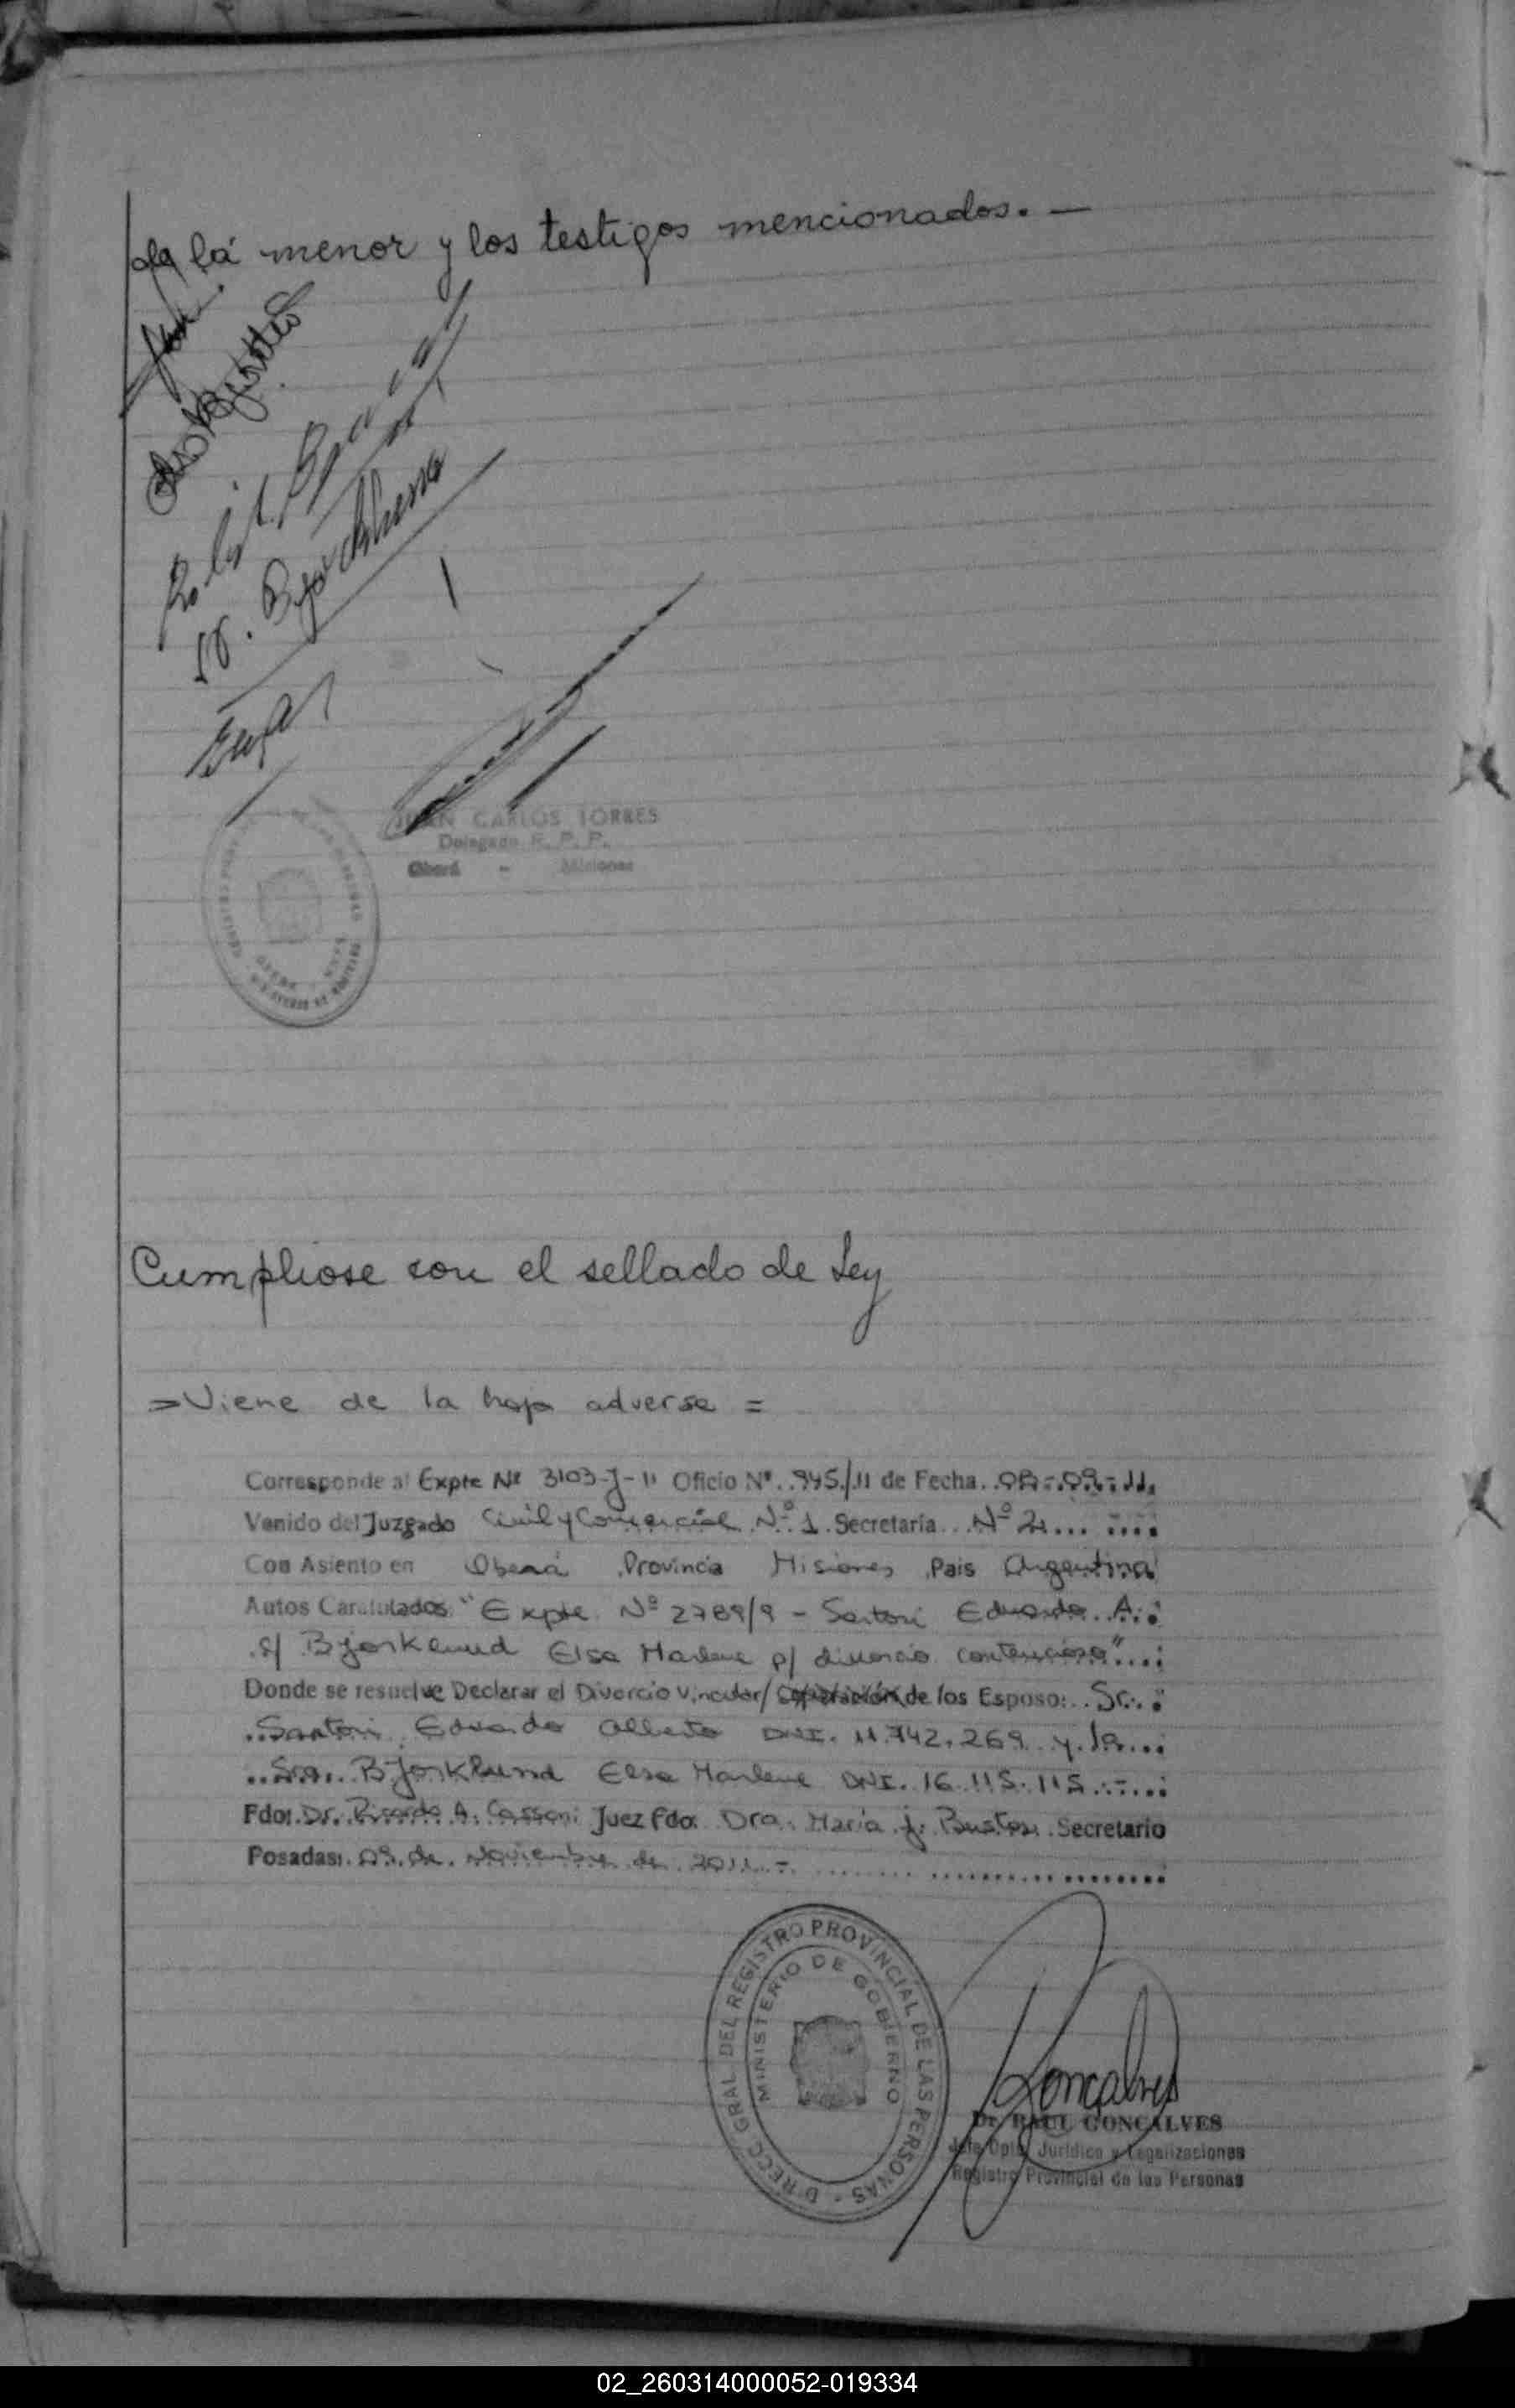 de la menor y los testigos mencionados. —
JUAN CARLOS TORRES
Delegado R. P. P.
Oberá - Misiones
Cumpliose con el sellado de Ley
=Viene de la hoja adversa =
Corresponde al Expte Nº 3103-J-11 Oficio Nº..945./.11 de Fecha..08-.09.-.11.
Venido del Juzgado Civil y Comercial Nº 1. Secretaría...Nº 2...
Con Asiento en Oberá Provincia Misiones País Argentina
Autos Caratulados "Expte Nº 2789/9 - Sartori Eduardo A..
s/ Bjorklund Elsa Marlene p/ divorcio contencioso"....
Donde se resuelve Declarar el Divorcio Vincular/ Separación de los Esposo:..Sr..
..Sartori Eduardo Alberto DNI. 11.742.269 y la...
..Sra.. Bjorklund Elsa Marlene DNI. 16.115.115.-...
Fdo: Dr. Ricardo A. Cassoni Juez Fdo: Dra. María J. Bustos Secretario
Posadas: 09 de Noviembre de 2011.-
DIRECC. GRAL. DEL REGISTRO PROVINCIAL DE LAS PERSONAS -
MINISTERIO DE GOBIERNO
Goncalves
Dr. RAUL GONCALVES
Jefe Dpto. Jurídico y Legalizaciones
Registro Provincial de las Personas
02_260314000052-019334